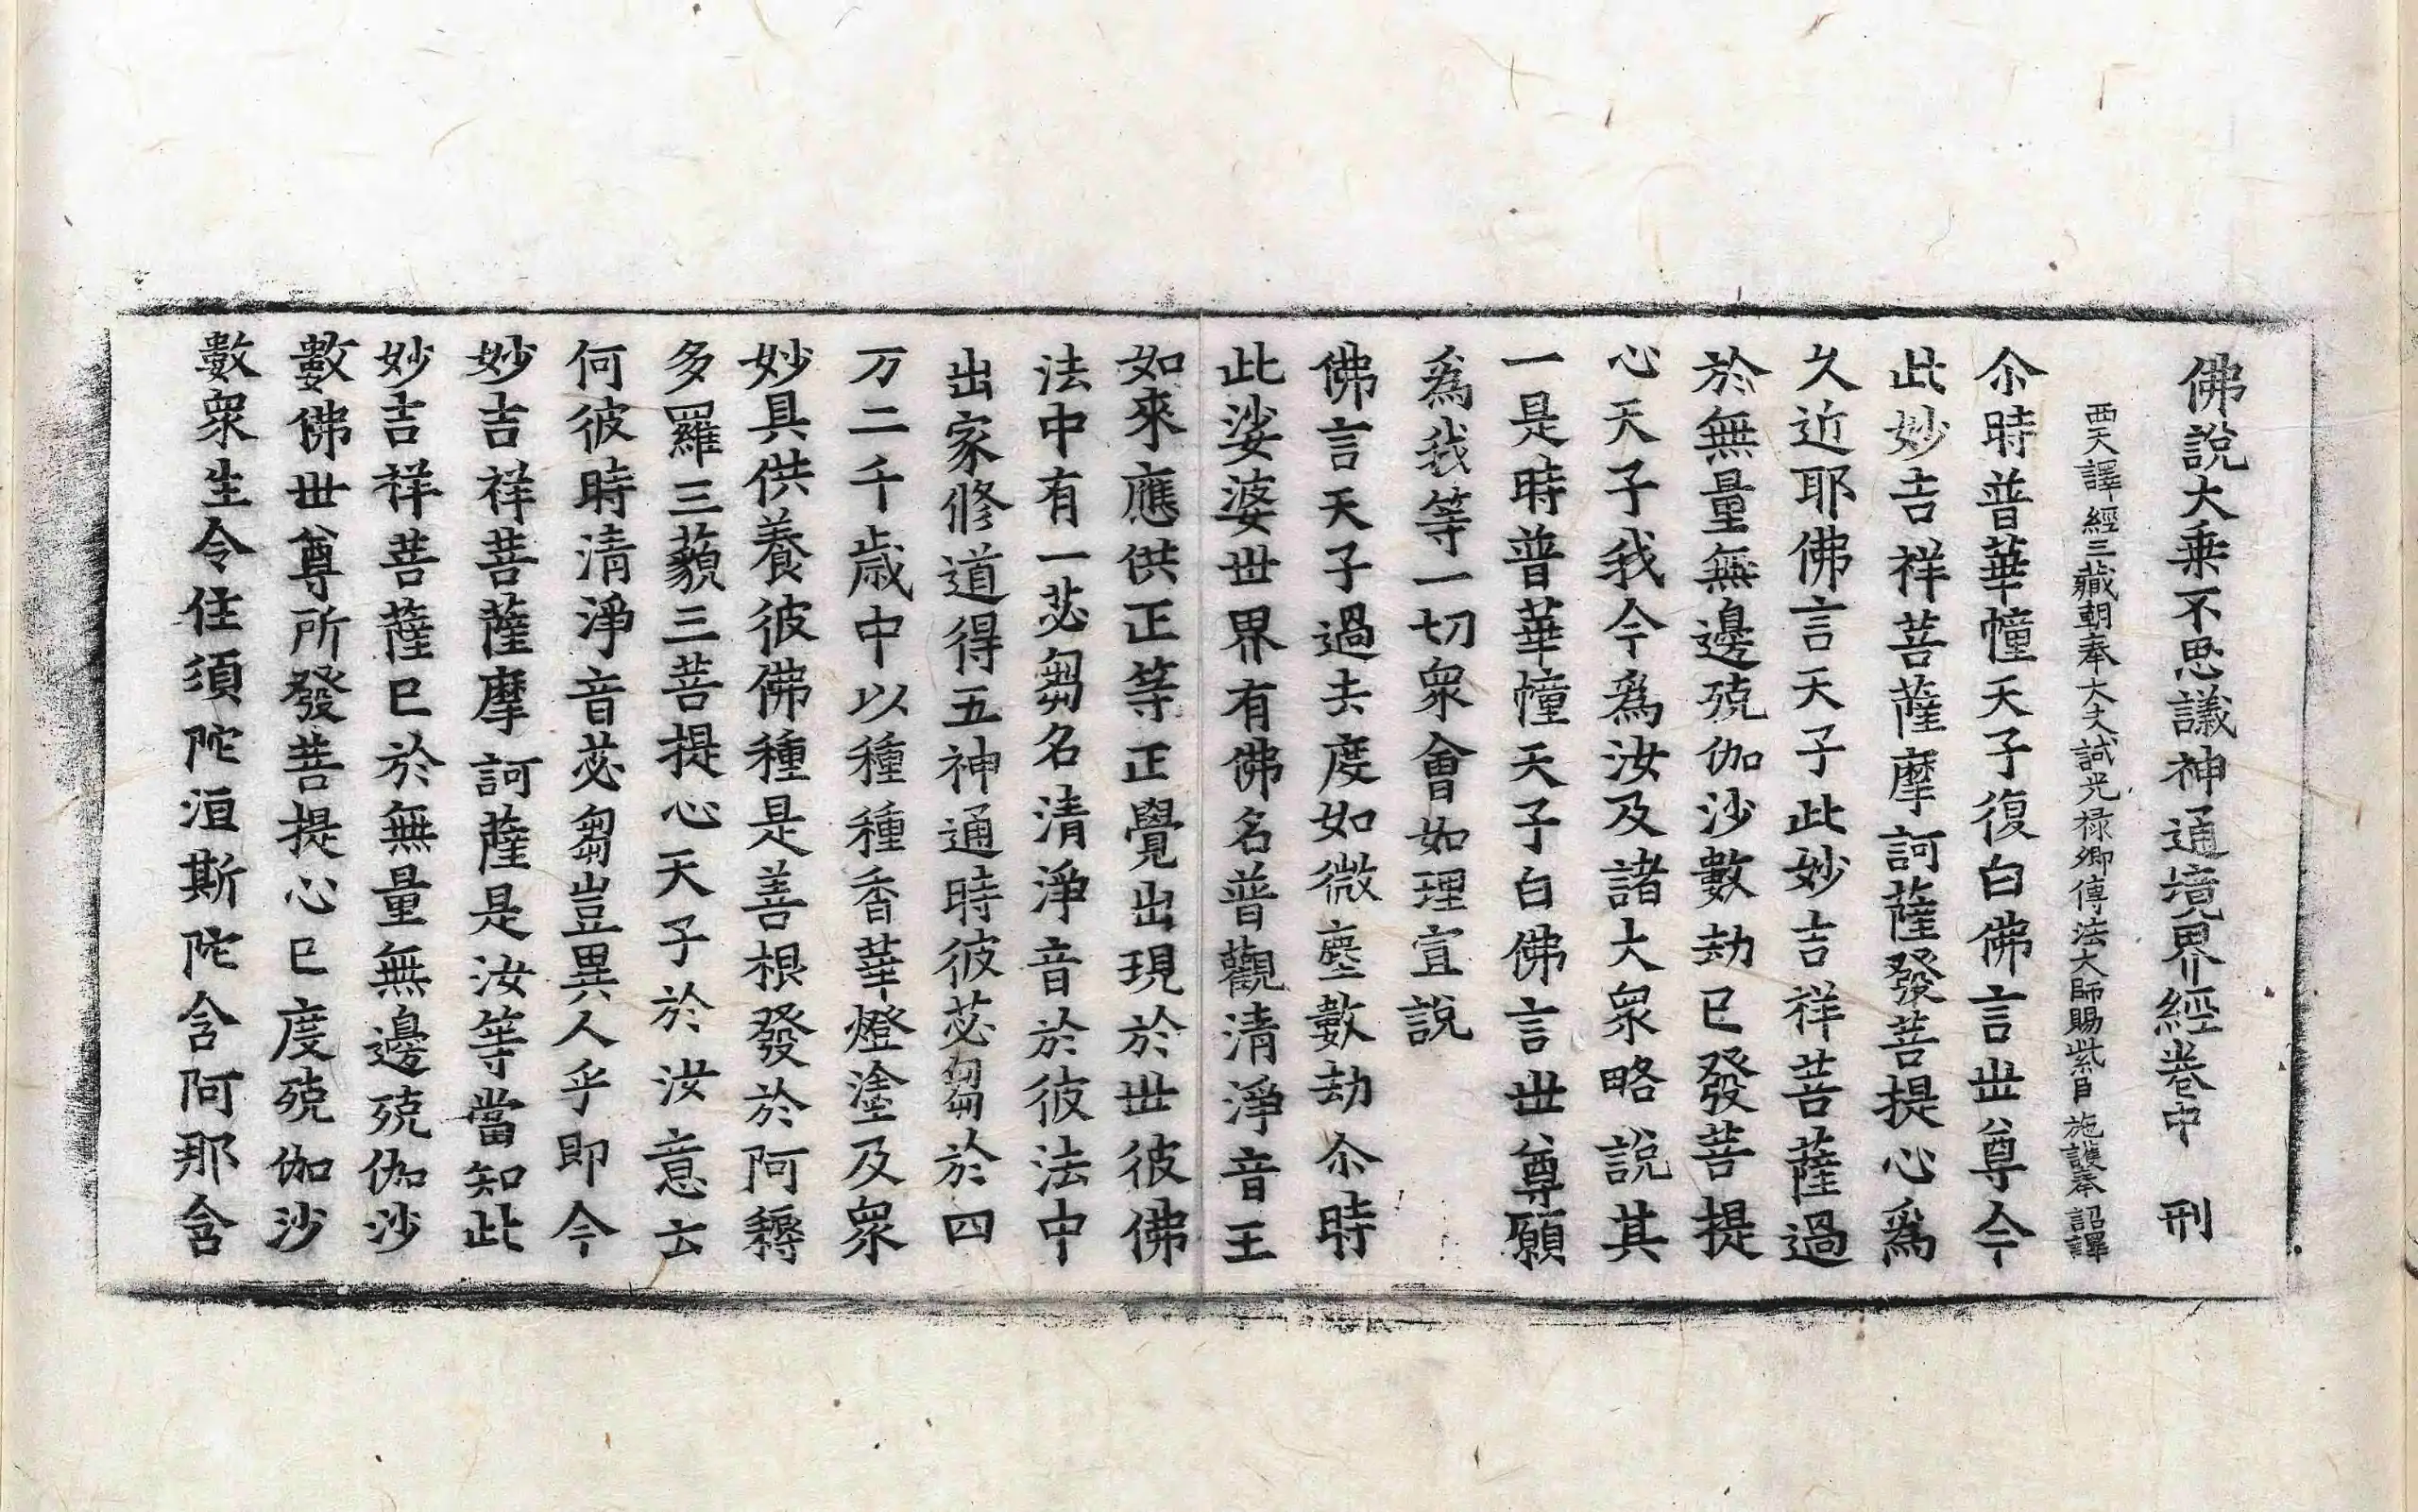 佛說大乘不思議神通境界經卷中　刑
西天譯經三藏朝奉大夫試光祿卿傳法大師賜紫臣　施護奉　詔譯
尒時普華幢天子復白佛言世尊今
此妙吉祥菩薩摩訶薩發菩提心爲
久近耶佛言天子此妙吉祥菩薩過
於無量無邊殑伽沙數劫已發菩提
心天子我今爲汝及諸大衆略說其
一是時普華幢天子白佛言世尊願
爲我等一切衆會如理宣說
佛言天子過去度如微塵數劫尒時
此娑婆世界有佛名普觀清淨音王
如來應供正等正覺出現於世彼佛
法中有一苾芻名清淨音於彼法中
出家修道得五神通時彼苾芻於四
万二千歲中以種種香華燈塗及衆
妙具供養彼佛種是善根發於阿耨
多羅三藐三菩提心天子於汝意云
何彼時清淨音苾芻豈異人乎即今
妙吉祥菩薩摩訶薩是汝等當知此
妙吉祥菩薩已於無量無邊殑伽沙
數佛世尊所發菩提心已度殑伽沙
數衆生令住須陀洹斯陀含阿那含